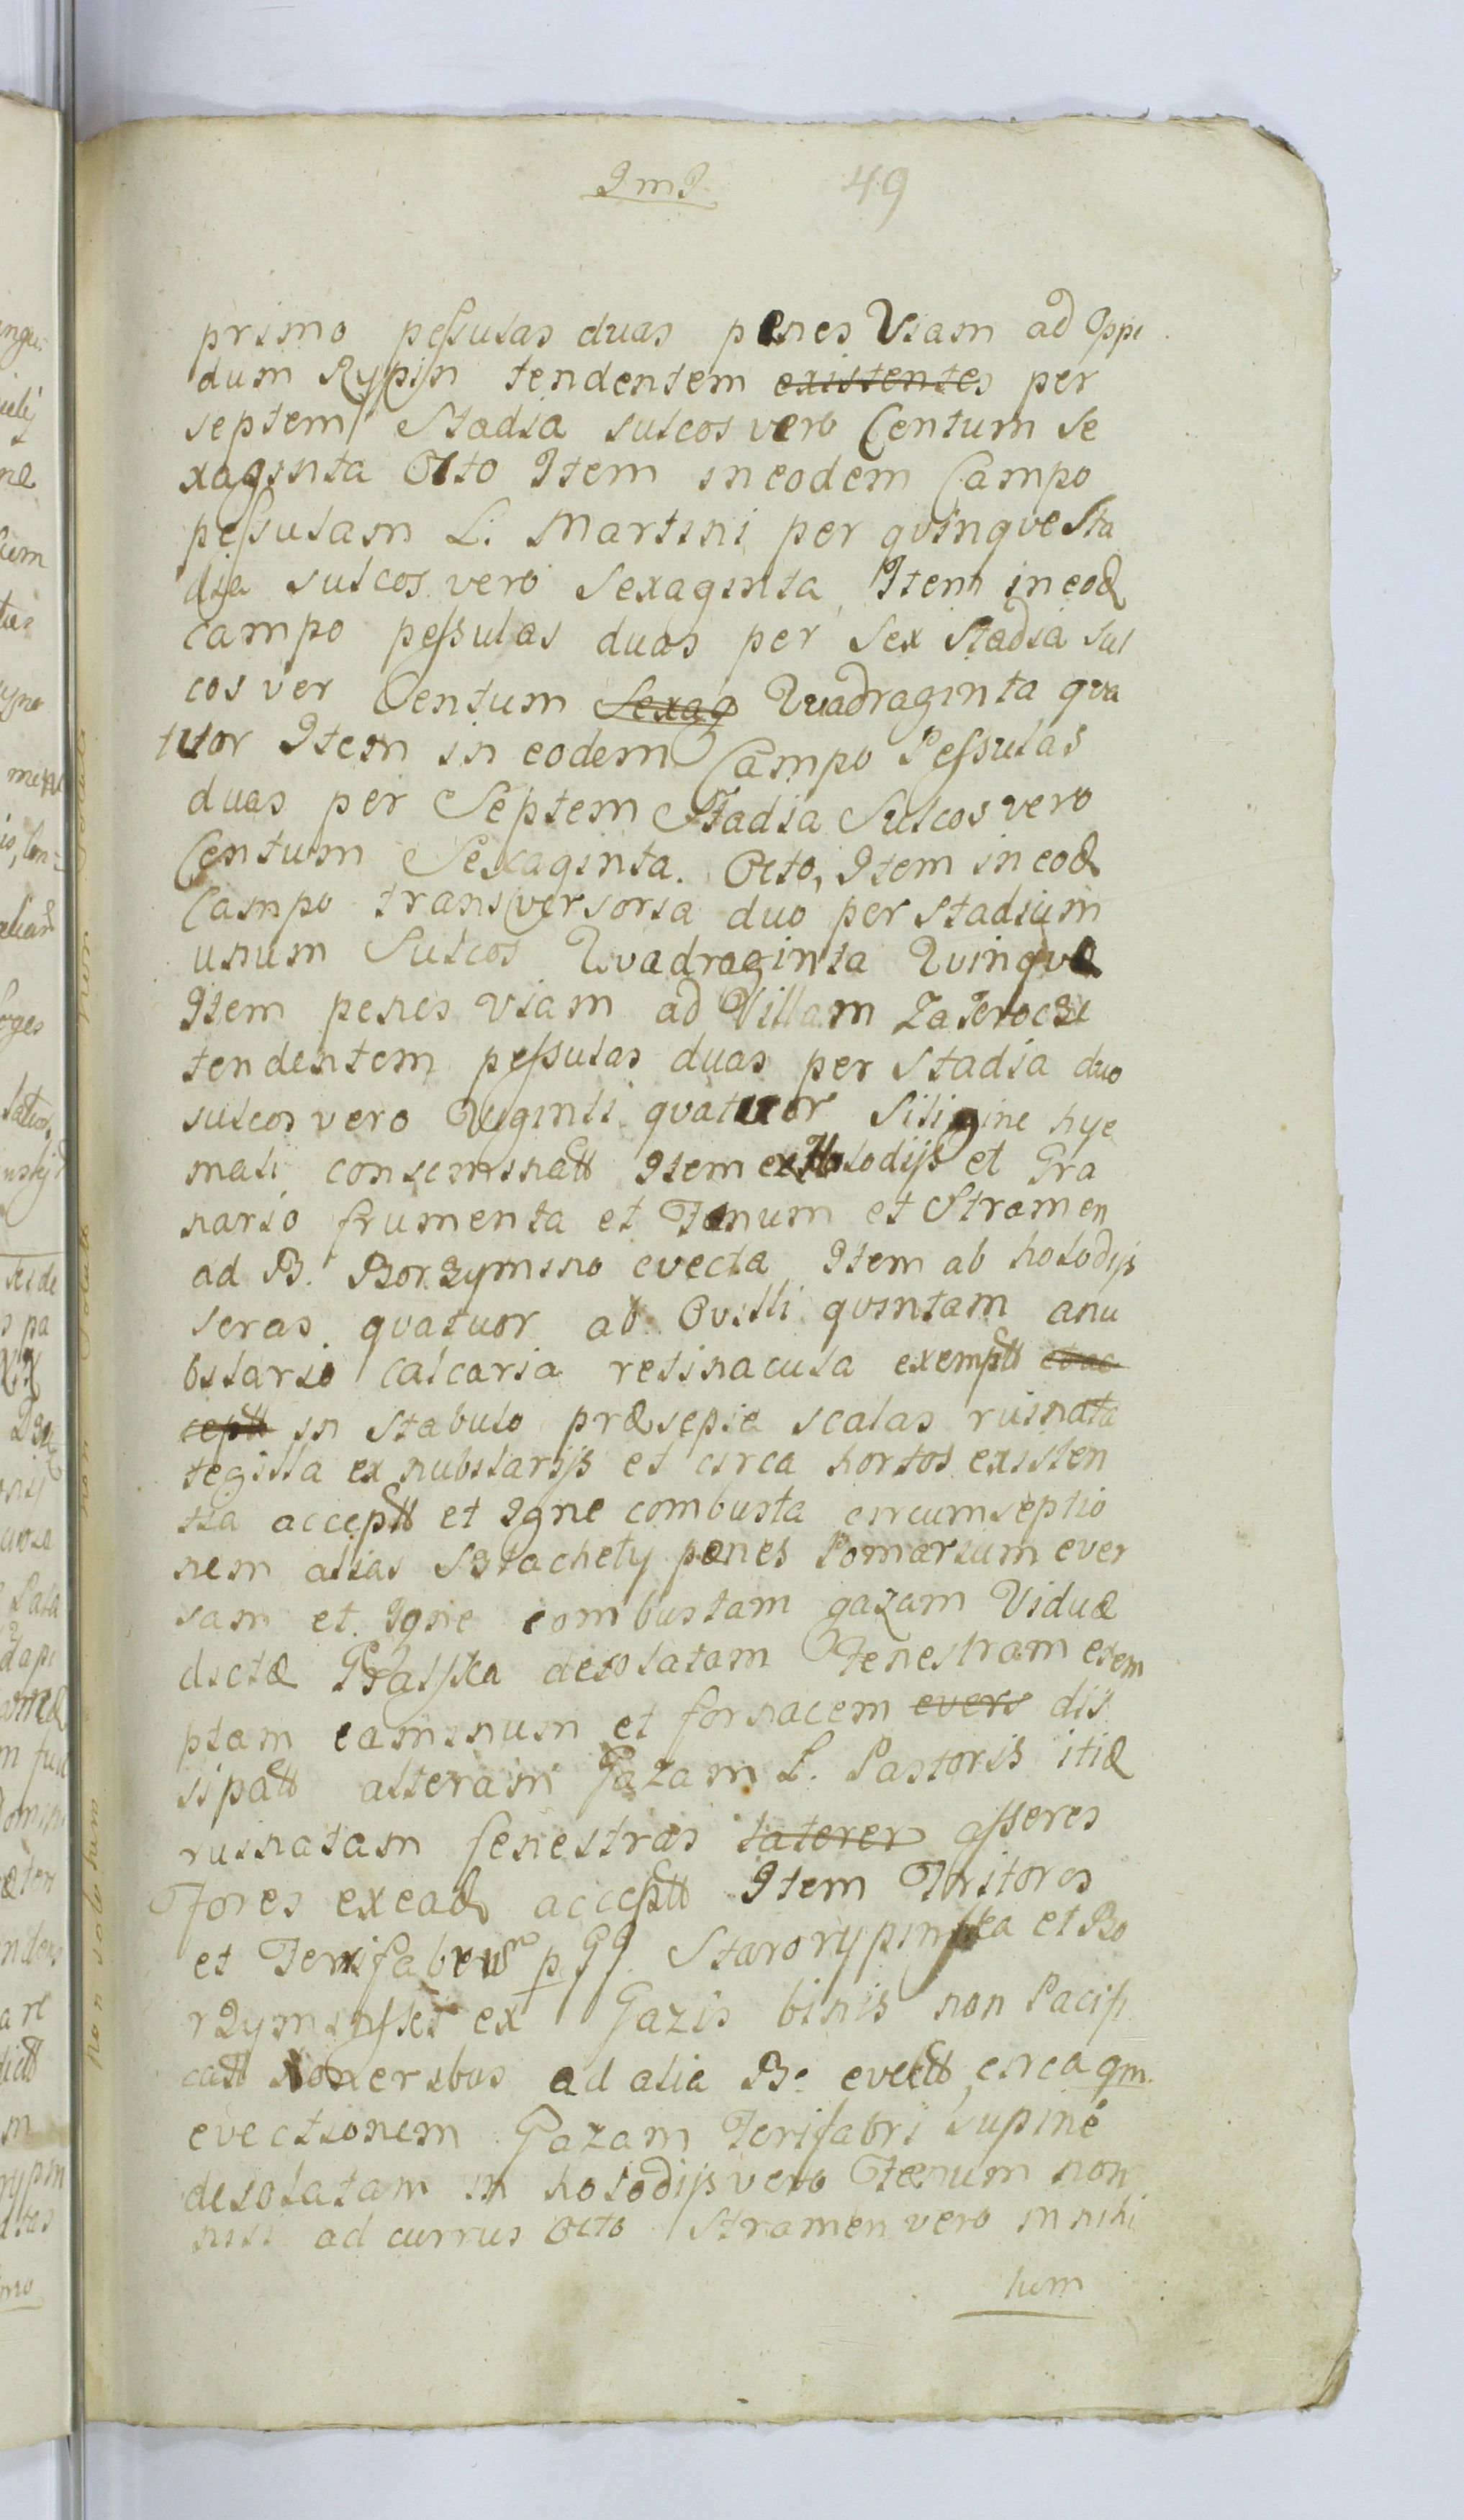 JmJ 49
primo pessulas duas penes Viam ad Oppi
dum Rypin tendentem existentes per
septem Stadia sulcos vero Centum se
xaginta Octo Item in eodem Campo
pessulam L: Martini per qvinqve Sta
dia sulcos vero Sexaginta, Item in eod
campo pessulas duas per Sex Stadia sul
cos ver Centum Sexag Qvadraginta qva
tuor Item in eodem Campo Pessulas
duas per Septem Stadia Sulcos vero
Centum Sexaginta. Octo, Item in eod
Campo transversoria duo per stadium
unum Sulcos Qvadraginta Qvinqve
Item penes viam ad Villam Zaseroczi
tendentem pessulas duas per Stadia duo
sulcos vero Viginti qvatuor Siligine hye
mali conseminatt Item ex Holodijs et Gra
nario frumenta et Fænum et Stramen
ad B. Borzymino evecta Item ab holodijs
seras qvatuor ab Ovilli qvintam anu
bilario calcaria retinacula exemptt et ac
ceptt in stabulo præsepia scalas ruinata
tegilla ex nubilarijs et circa hortos existen
tia acceptt et Igne combusta circumseptio
nem alias Sztachety penes Pomarium ever
sam et Igne combustam gazam Viduæ
dictæ desolatam Fenestram exem
ptam caminum et fornacem evers dis
sipatt alteram Gazam L. Pastoris itid
ruinatam fenestras laterer asseres
Fores exead acceptt Item Tritores
et p GG. Starorypinska et Bo
rzyminsket ex Gazis binis non Pacif
catt ad alia B. evectt circa qm
evectionem Gazam Ferifabri supine
desolatam in holodijs vero Fænum non
nisi ad currus octo Stramen vero in nihi
lum